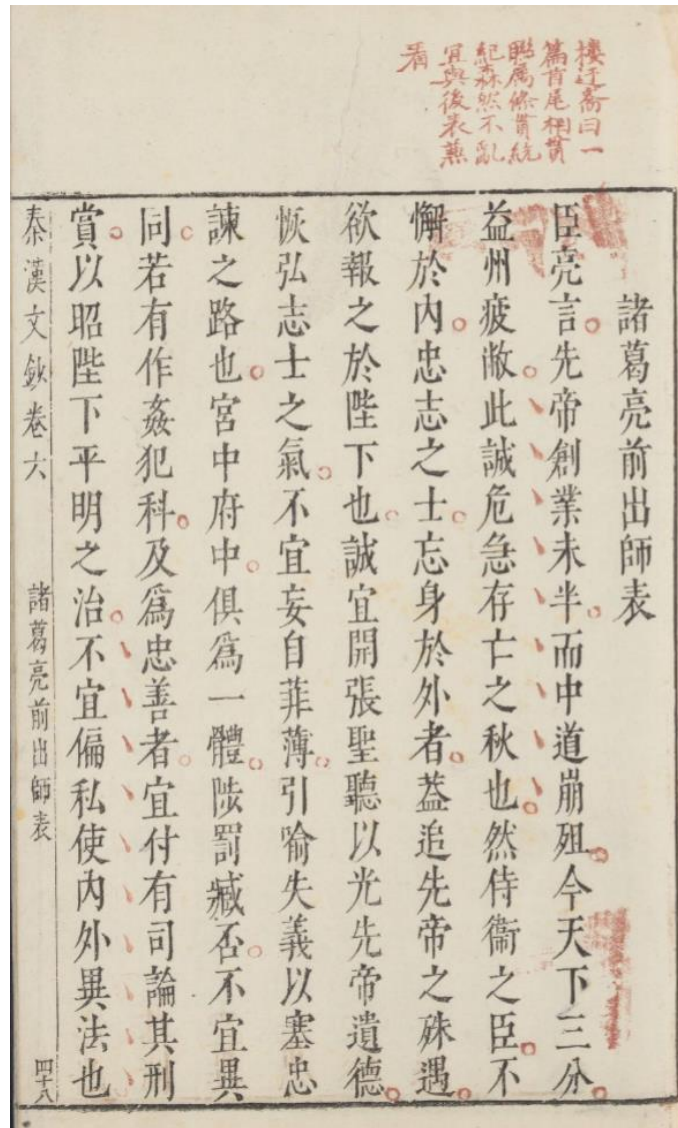 樓迂齋曰一
篇首尾相貫
聯屬條貫統
紀森然不亂
宜與後表兼
看
諸葛亮前出師表
臣亮言。先帝創業未半。而中道崩殂。今天下三分。
益州疲敝。此誠危急存亡之秋也。然侍衞之臣。不
懈於內。忠志之士。忘身於外者。葢追先帝之殊遇。
欲報之於陛下也。誠宜開張聖聽以光先帝遺德。
恢弘志士之氣。不宜妄自菲薄。引喻失義以塞忠
諫之路也。宮中府中。俱爲一體。陟罰臧否。不宜異
同。若有作姦犯科。及爲忠善者。宜付有司論其刑
賞。以昭陛下平明之治。不宜偏私使內外異法也
秦漢文鈔卷六 諸葛亮前出師表 四十八